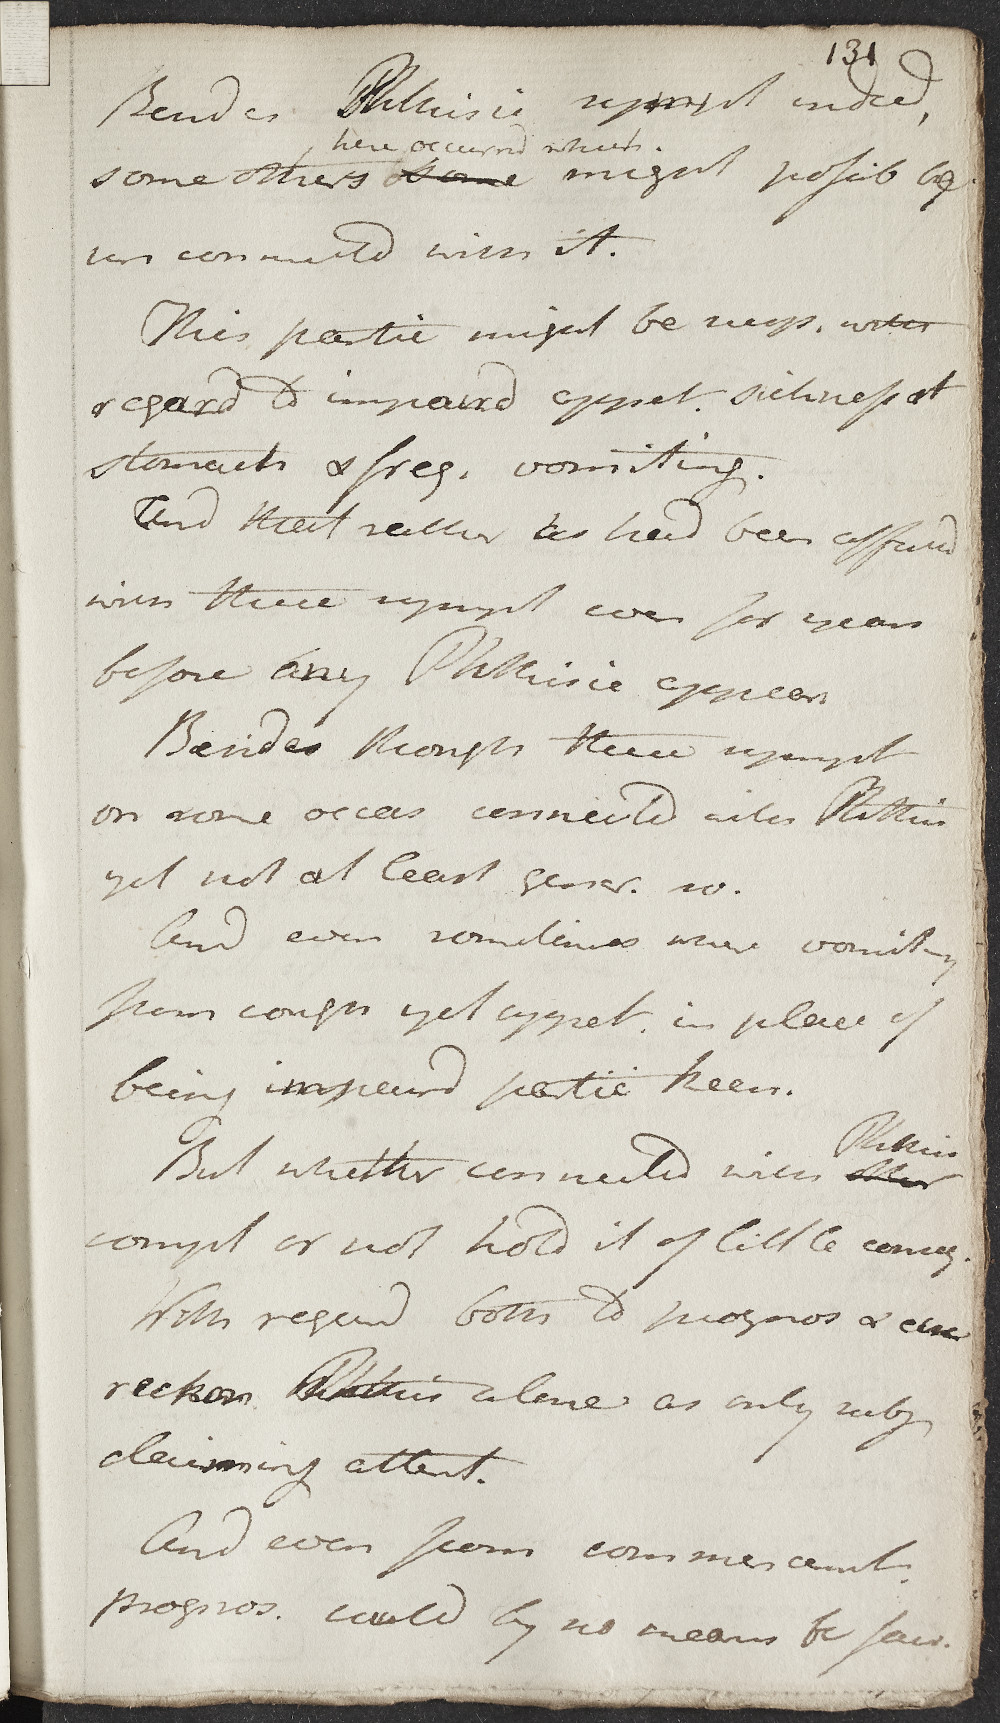 131
Besides Phthisic sympt indeed,
here occurred which
some others ~~some~~ might possib be
un connected with it.
This partic might be resp. with
regard to impaired appet. sickness at
stomach & freq. vomiting.
And that rather as had been affected
with these sympt even for years
before any Phthisic appear
Besides though these sympt
on some occas connected with Phthis
yet not at least gener. so.
And even sometimes where vomiting
from cough yet appet. in place of
being impaired partic keen.
Phthis
But whether connected with ~~other~~
compl or not hold it of little conseq.
With regard both to prognos & cure
reckon Phthisis alone as only subj
claiming attent.
And even from commencemt.
prognos. could by no means be fav.